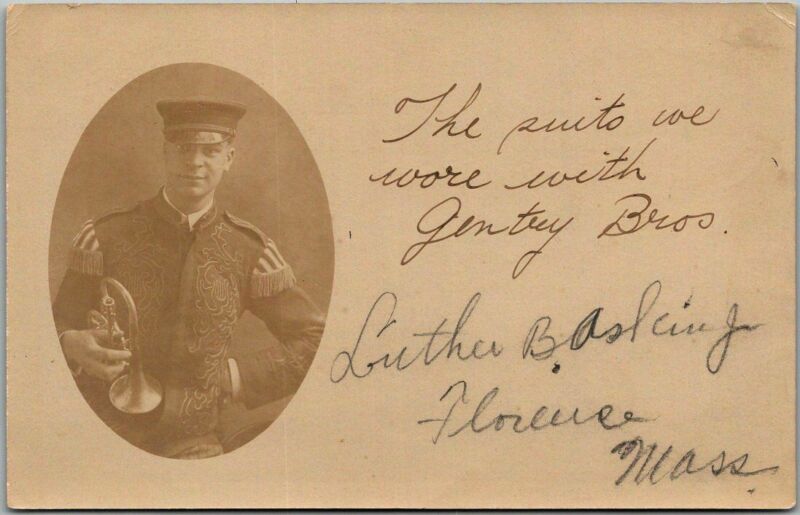 The suits we
wore with
Gentry Bros.
Luther B. Asking
Florence
Mass.